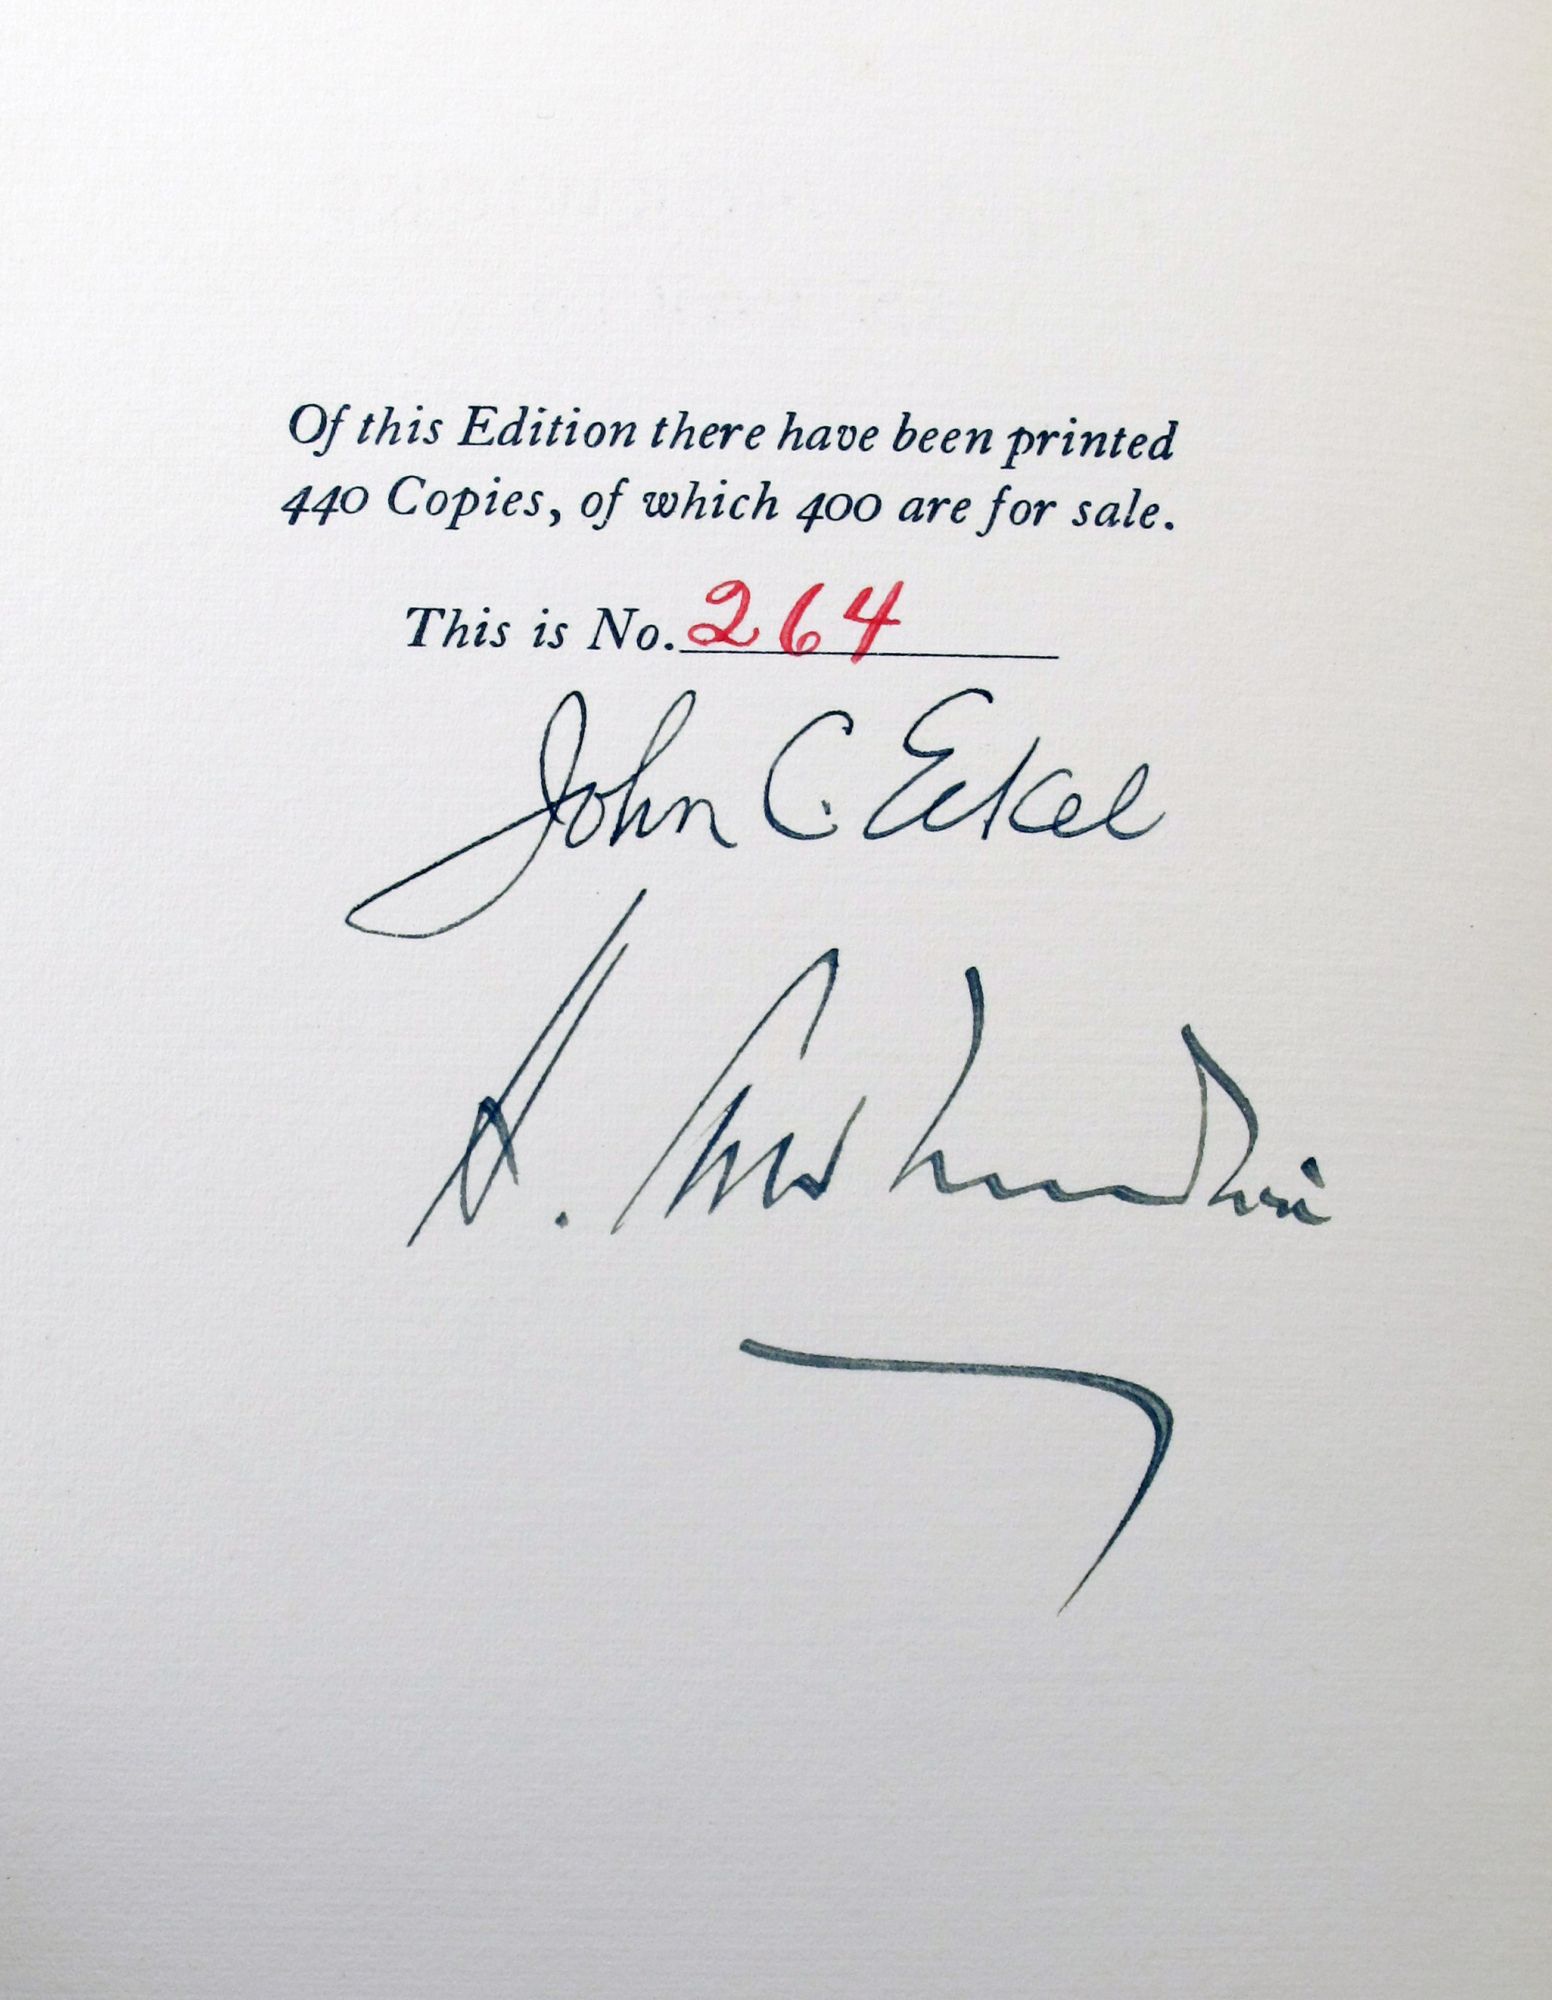 Of this Edition there have been printed
440 Copies, of which 400 are for sale.
This is No. 264
John C. Eckel
A.